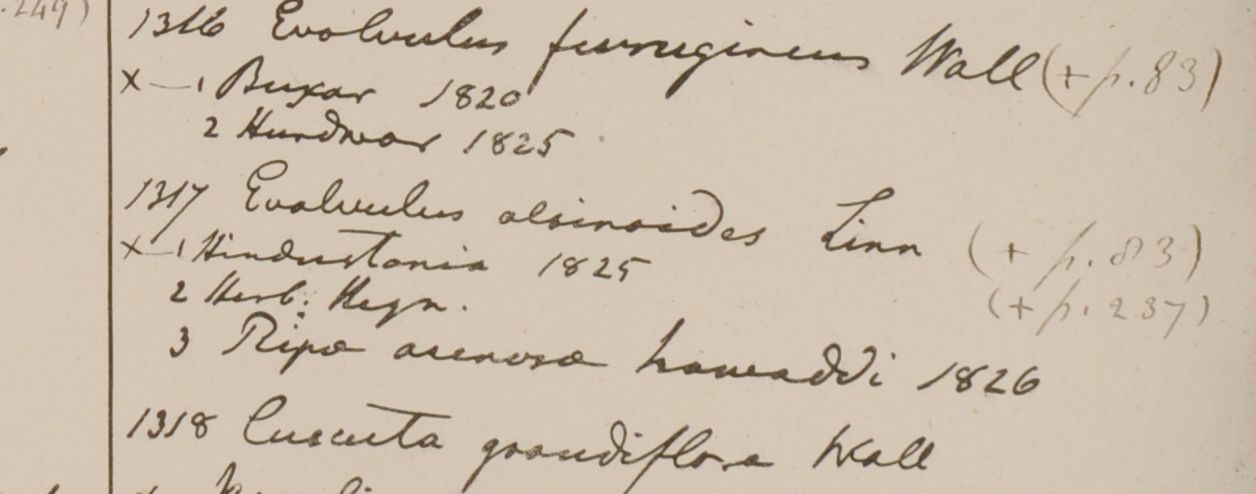 .249)
1316 Evolvulus ferrugineus Wall (+ p. 83)
x — 1 Buxar 1820
2 Hurdwar 1825
1317 Evolvulus alsinoides Linn (+ p. 83)
x — 1 Hindustania 1825 (+ p. 237)
2 Herb: Heyn.
3 Ripa arenosa Irawaddi 1826
1318 Cuscuta grandiflora Wall